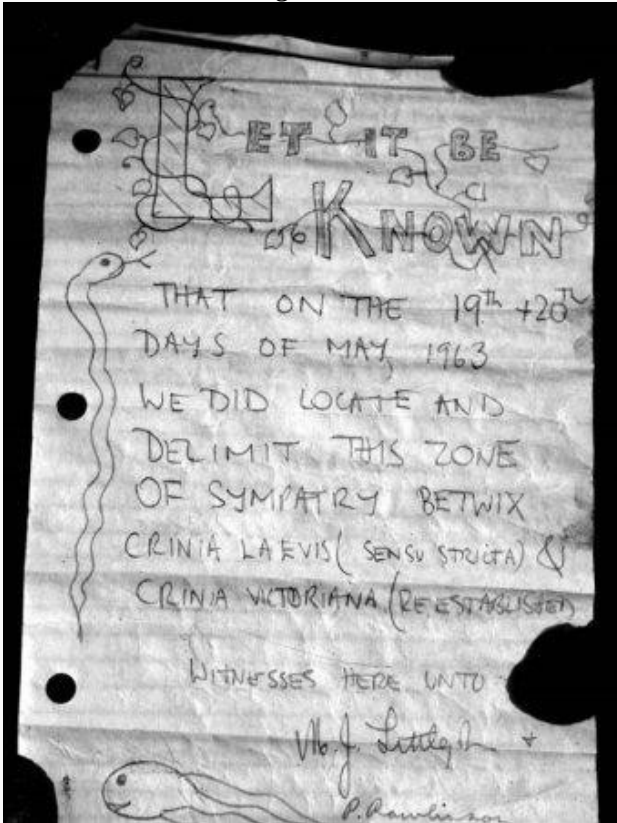 LET IT BE
KNOWN
THAT ON THE 19th + 20th
DAYS OF MAY, 1963
WE DID LOCATE AND
DELIMIT THIS ZONE
OF SYMPATRY BETWIX
CRINIA LAEVIS (SENSU STRICTA) &
CRINIA VICTORIANA (REESTABLISHED
WITNESSES HERE UNTO
M. J. Littlejohn +
P. Rawlinson